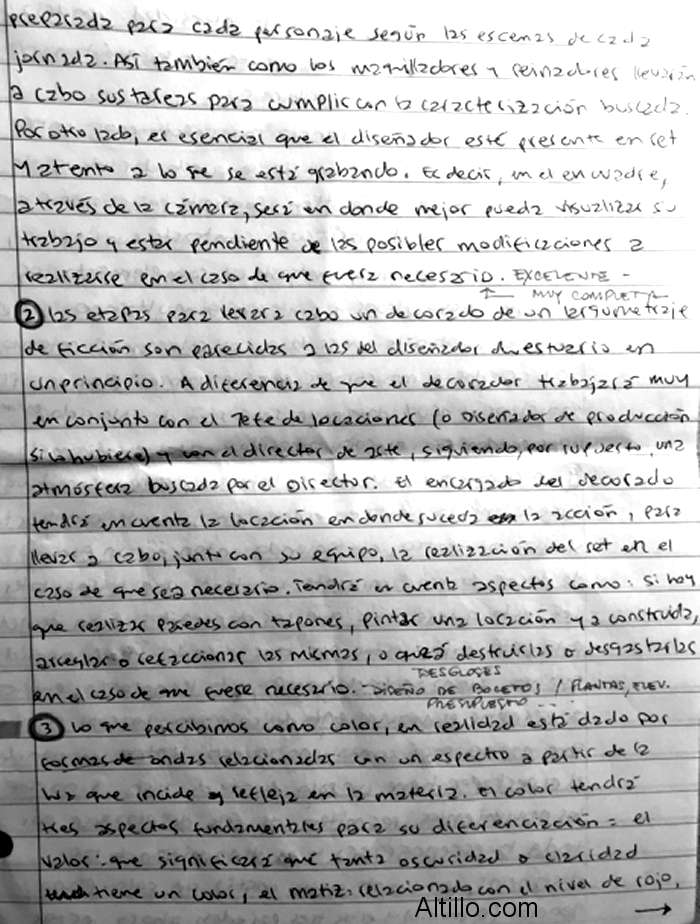 preparada para cada personaje según las escenas de cada
jornada. Así también como los maquilladores y peinadores llevarán
a cabo sus tareas para cumplir con la caracterización buscada.
Por otro lado, es esencial que el diseñador esté presente en set
y atento a lo que se está grabando. Es decir, en el encuadre,
a través de la cámara, será en donde mejor pueda visualizar su
trabajo y estar pendiente de las posibles modificaciones a
realizarse en el caso de que fuera necesario. EXCELENTE -
MUY COMPLETA
2 las etapas para llevar a cabo un decorado de un largometraje
de ficción son parecidas a las del diseñador de vestuario en
un principio. A diferencia de que el decorador trabajará muy
en conjunto con el Jefe de locaciones (o Diseñador de producción
si lo hubiese) y con el director de arte, siguiendo, por supuesto, una
atmósfera buscada por el Director. El encargado del decorado
tendrá en cuenta la locación en donde suceda la acción, para
llevar a cabo, junto con su equipo, la realización del set en el
caso de que sea necesario. Tendrá en cuenta aspectos como: si hay
que realizar paredes con tapones, pintar una locación ya construida,
arreglar o refaccionar las mismas, o quizá destruirlas o desgastarlas
DESGLOSES
en el caso de que fuese necesario. - DISEÑO DE BOCETOS / PLANTAS, ELEV.
PRESUPUESTO...
3 Lo que percibimos como color, en realidad está dado por
formas de ondas relacionadas con un espectro a partir de la
luz que incide y refleja en la materia. El color tendrá
tres aspectos fundamentales para su diferenciación: el
valor: que significará que tanta oscuridad o claridad
tiene un color, el matiz: relacionado con el nivel de rojo,
Altillo.com